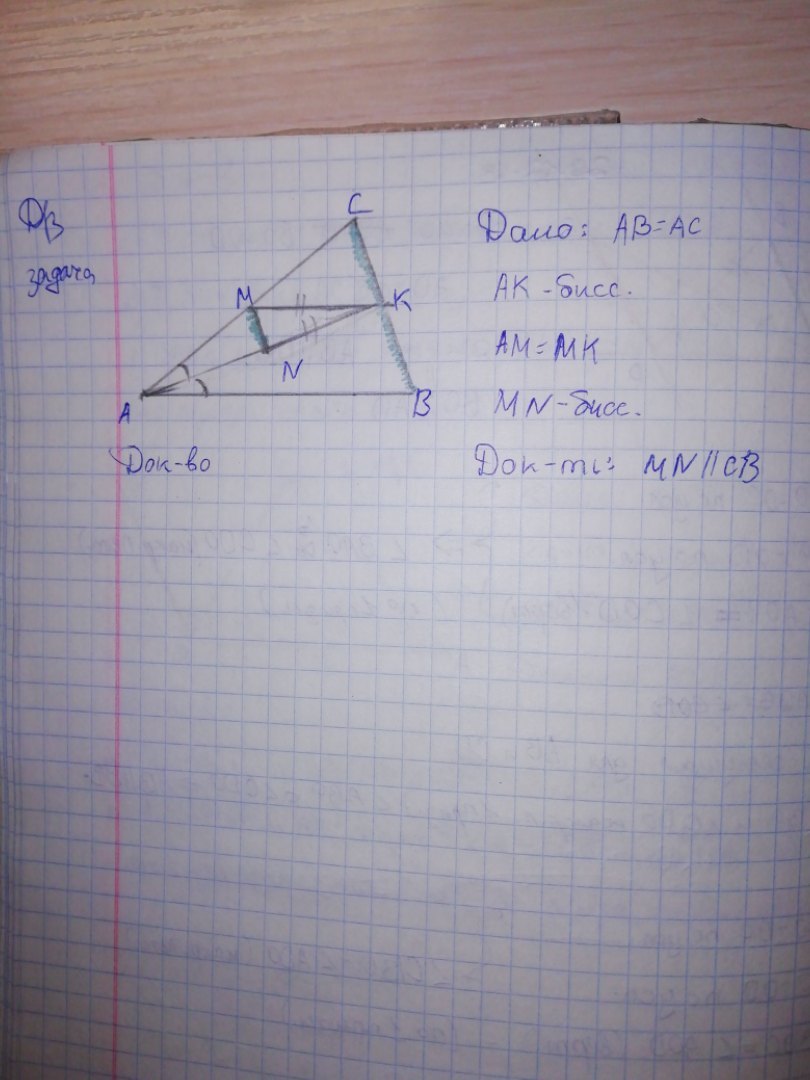 Д/з
задача
C
M
K
N
A
B
Дано: AB=AC
AK-бисс.
AM=MK
MN-бисс.
Док-ть: MN||CB
Док-во